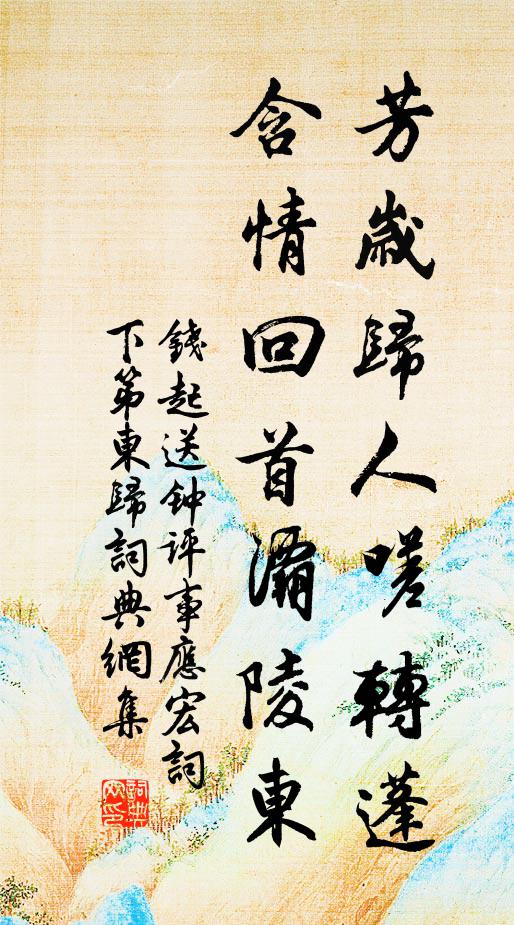 芳歲歸人嗟轉蓬
含情回首灞陵東
錢起送钟评事應宏詞
下第東歸詞典網集